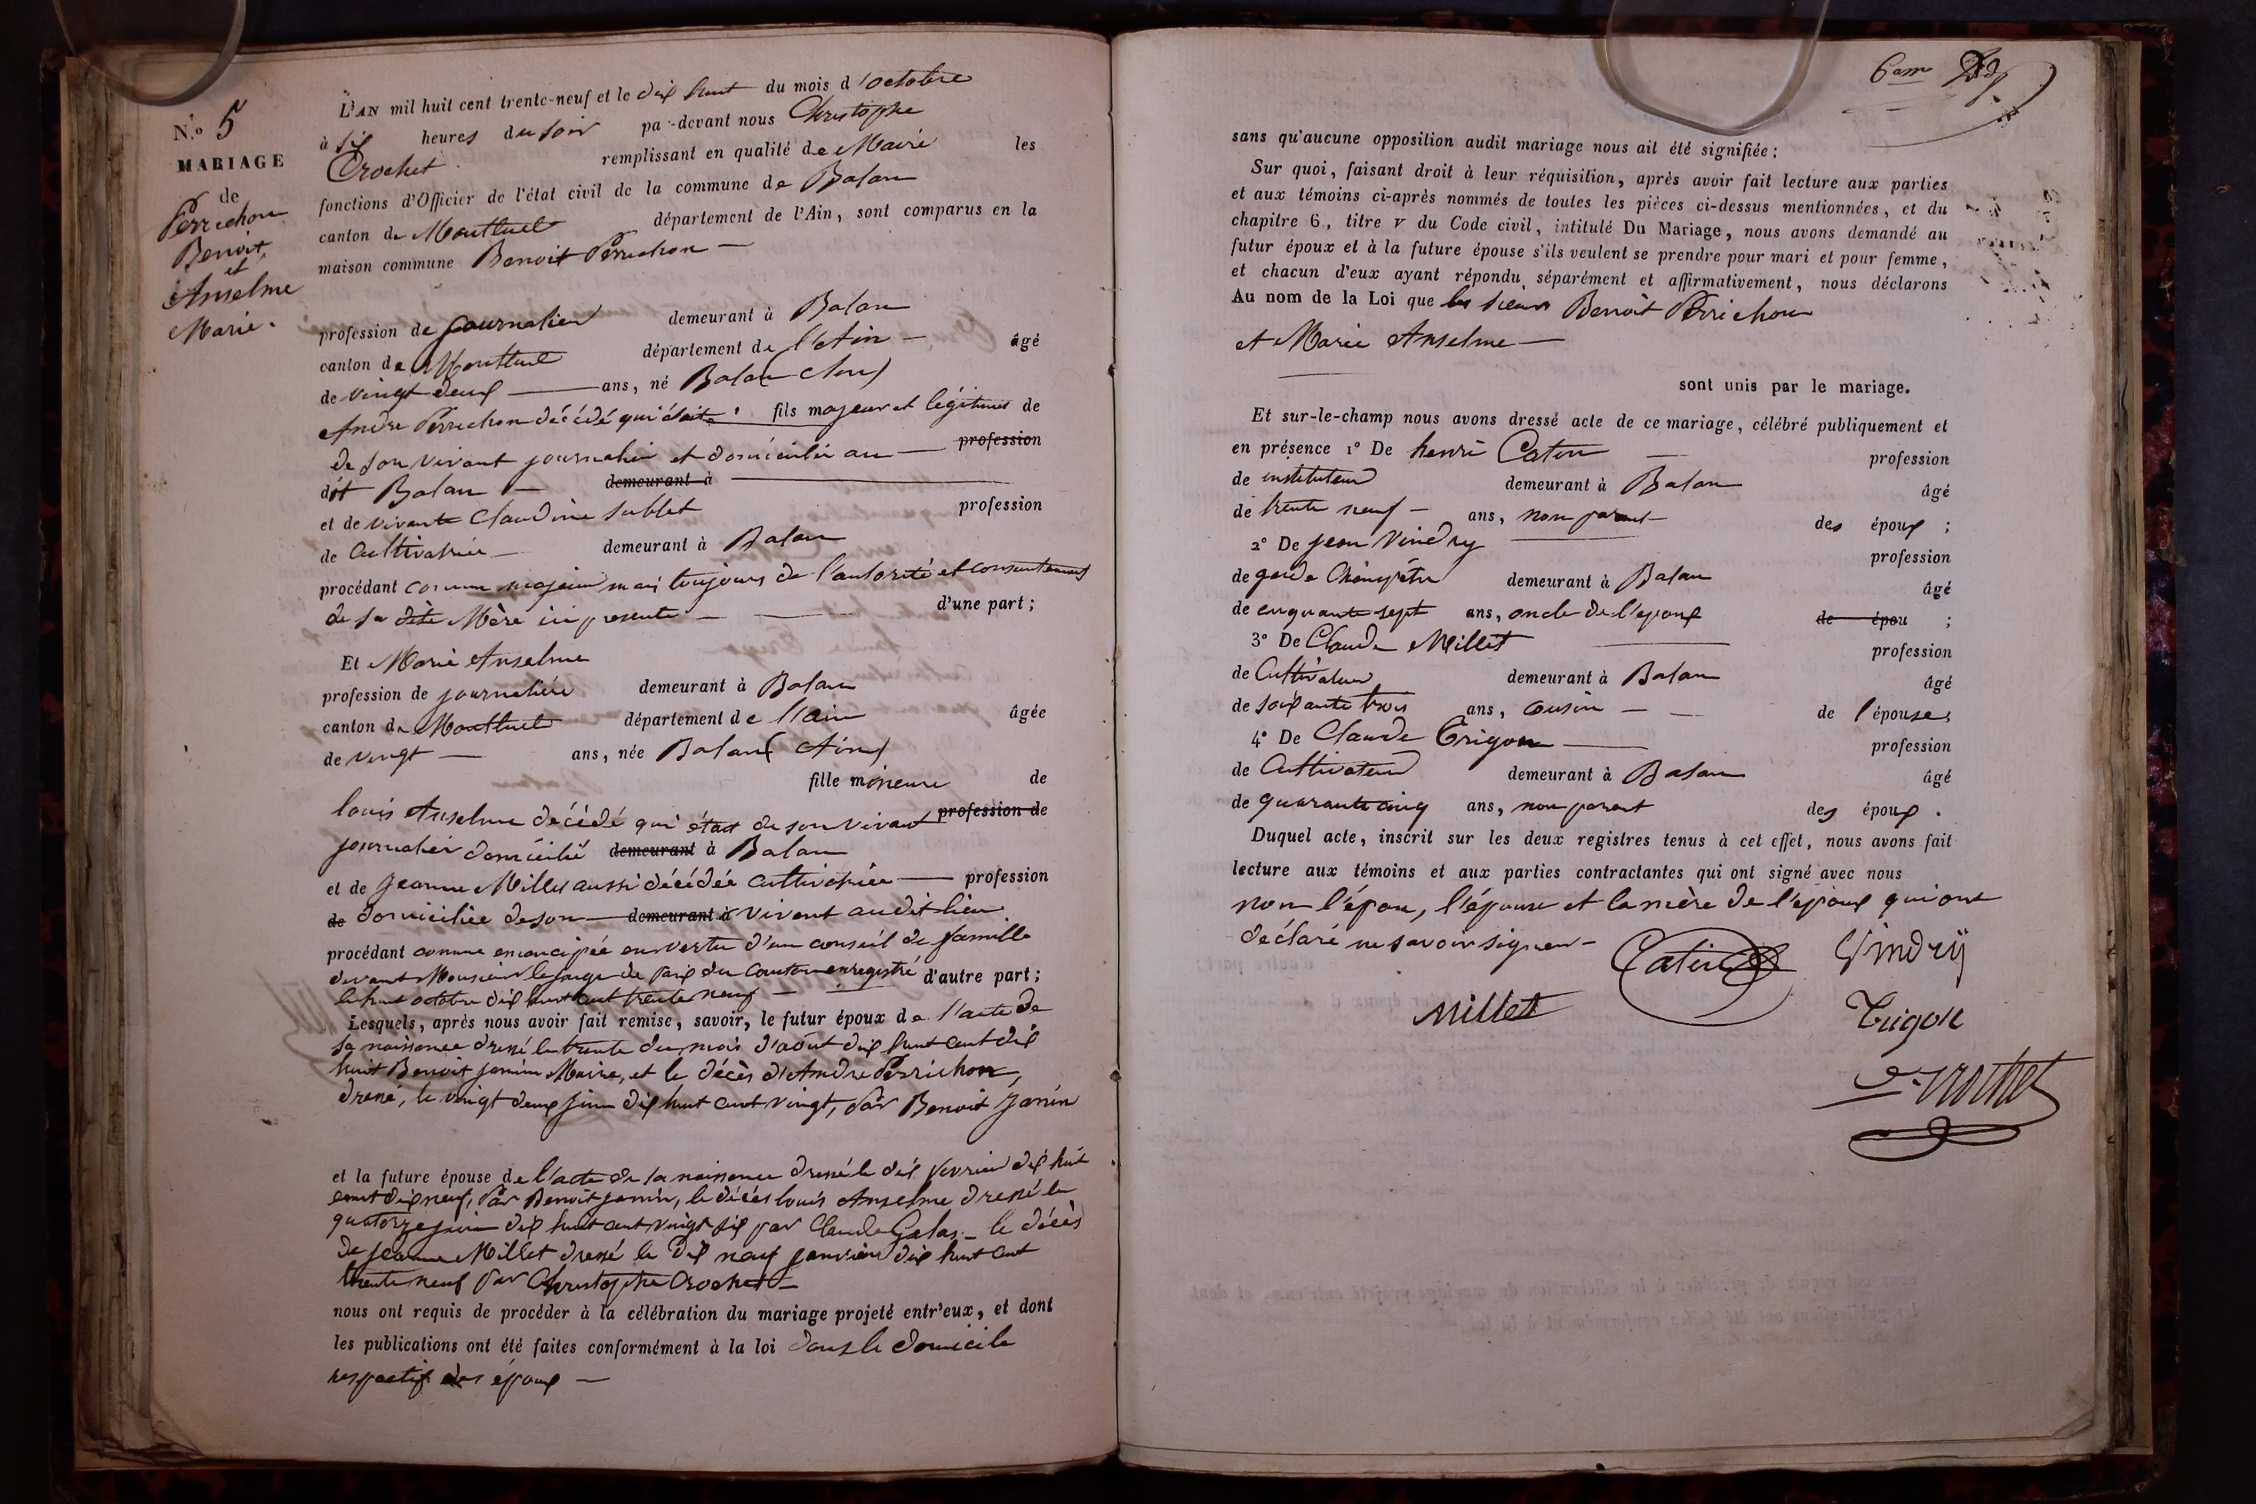 N.º 5
MARIAGE
de
Perrichon
Benoit
et
Anselme
Marie.
L'AN mil huit cent trente-neuf et le dix huit du mois d'octobre
à six heures du soir par-devant nous Christophe
Crochet remplissant en qualité de Maire les
fonctions d'Officier de l'état civil de la commune de Balan
canton de Montluel département de l'Ain, sont comparus en la
maison commune Benoit Perrichon —
profession de journalier demeurant à Balan
canton de Montluel département de l'Ain — âgé
de vingt deux — ans, né Balan (Ain)
Andre Perrichon décédé qui était fils majeur et légitime de
de son vivant journalier et domicilié au — profession
dit Balan — demeurant à —
et de vivante Claudine Sublet profession
de Cultivatrice — demeurant à Balan
procédant comme majeur mais toujours de l'autorité et consentement
de sa dite Mère ici presente — d'une part ;
Et Marie Anselme
profession de journalière demeurant à Balan
canton de Montluel département de l'ain âgée
de vingt — ans, née Balan (Ain)
fille mineure de
louis Anselme décédé qui était de son vivant profession de
journalier domicilié demeurant à Balan
et de Jeanne Millet aussi décédée cultivatrice — profession
de domiciliée de son — demeurant à vivant audit lieu
procédant comme emancipée en vertu d'un conseil de famille
devant Monsieur le juge de paix du Canton enregistré d'autre part ;
le huit octobre dix huit cent trente neuf —
Lesquels, après nous avoir fait remise, savoir, le futur époux de l'acte de
sa naissance dressé le trente du mois d'août dix huit cent dix
huit Benoit Janin Maire, et le décès d'Andre Perrichon,
dressé, le vingt deux juin dix huit cent vingt, par Benoit Janin
et la future épouse de l'acte de sa naissance dressé le dix fevrier dix huit
cent dix neuf, par Benoit Janin, le décès louis Anselme dressé le
quatorze juin dix huit cent vingt six par Claude Galas — le décès
de Jeanne Millet dressé le dix neuf janvier dix huit cent
trente neuf par Christophe Crochet —
nous ont requis de procéder à la célébration du mariage projeté entr'eux, et dont
les publications ont été faites conformément à la loi dans le domicile
respectif des époux —
6em
sans qu'aucune opposition audit mariage nous ait été signifiée ;
Sur quoi, faisant droit à leur réquisition, après avoir fait lecture aux parties
et aux témoins ci-après nommés de toutes les pièces ci-dessus mentionnées, et du
chapitre 6, titre V du Code civil, intitulé Du Mariage, nous avons demandé au
futur époux et à la future épouse s'ils veulent se prendre pour mari et pour femme,
et chacun d'eux ayant répondu séparément et affirmativement, nous déclarons
Au nom de la Loi que les sieurs Benoit Perrichon
et Marie Anselme —
sont unis par le mariage.
Et sur-le-champ nous avons dressé acte de ce mariage, célébré publiquement et
en présence 1º De henri Catin — profession
de instituteur demeurant à Balan âgé
de trente neuf — ans, non parent des époux ;
2º De jean Vindry — profession
de garde Champêtre demeurant à Balan âgé
de cinquante sept ans, oncle de l'epoux de épou ;
3º De Claude Millet — profession
de Cultivateur demeurant à Balan âgé
de soixante trois ans, cousin — de l'épouse ;
4º De Claude Trigon — profession
de Cultivateur demeurant à Balan âgé
de quarante cinq ans, non parent des époux .
Duquel acte, inscrit sur les deux registres tenus à cet effet, nous avons fait
lecture aux témoins et aux parties contractantes qui ont signé avec nous
non l'épou, l'épouse et la mère de l'époux qui ont
déclaré ne savoir signer —
Catin Vindry
Millet Trigon
Crochet